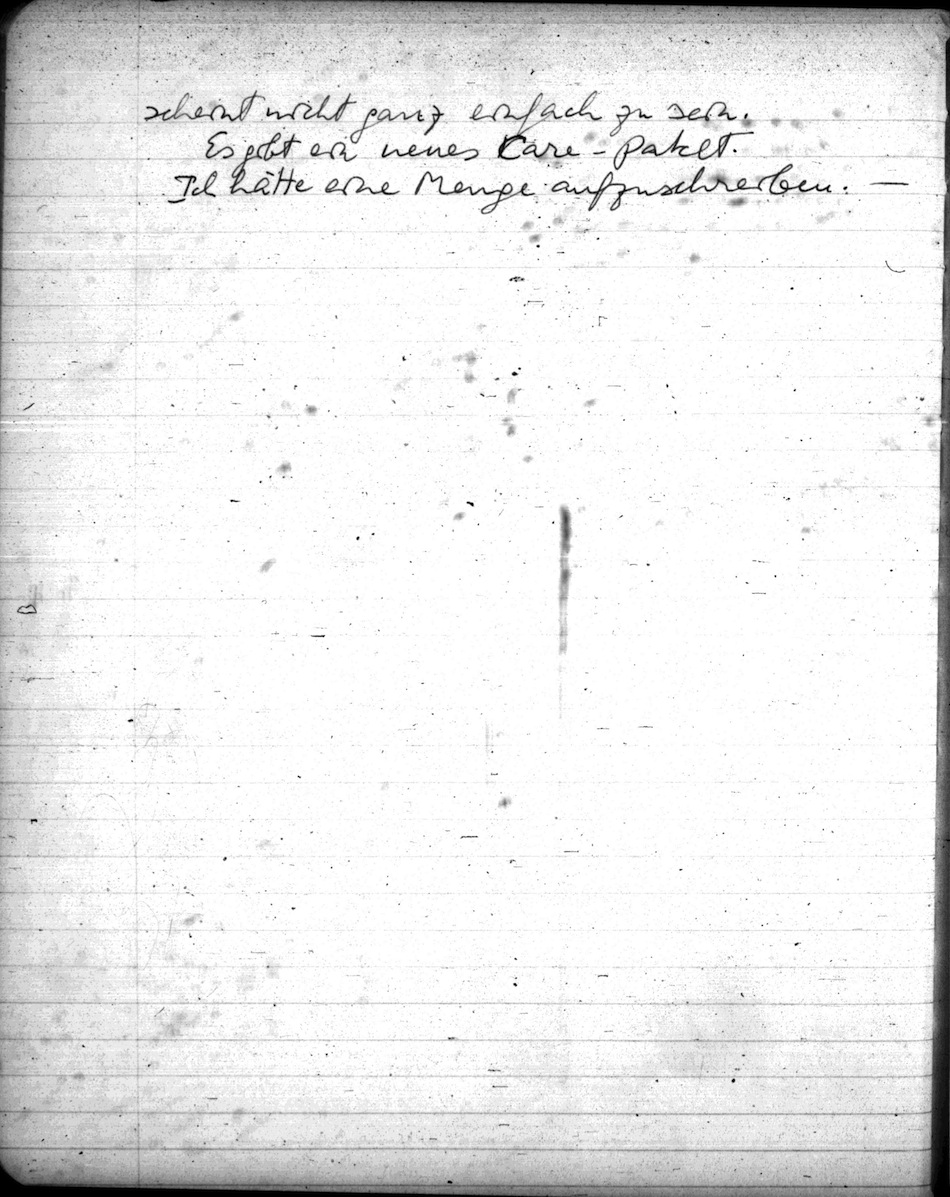 scheint nicht ganz einfach zu sein.
Es gibt ein neues Care-Paket.
Ich hätte eine Menge aufzuschreiben. —